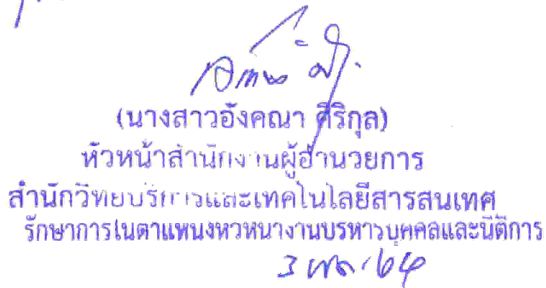 (นางสาวอังคณา ศิริกุล)
หัวหน้าสำนักงานผู้อำนวยการ
สำนักวิทยบริการและเทคโนโลยีสารสนเทศ
รักษาการในตำแหน่งหัวหน้างานบริหารบุคคลและนิติการ
3 พ.ค. 64